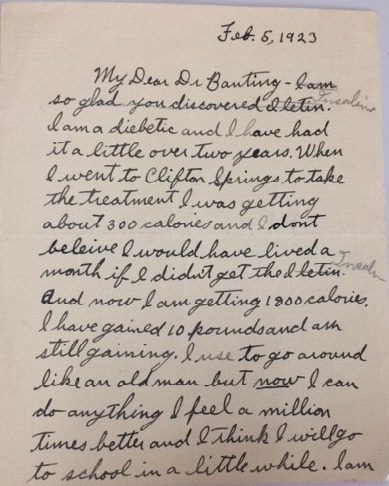 Feb. 5, 1923
My Dear Dr Banting - I am
so glad you discovered Iletin. Insulin
I am a diebetic and I have had
it a little over two years. When
I went to Clifton Springs to take
the treatment I was getting
about 300 calories and I dont
beleive I would have lived a
month if I didn't get the Iletin. Insulin
And now I am getting 1800 calories.
I have gained 10 pounds and am
still gaining. I use to go around
like an old man but now I can
do anything I feel a million
times better and I think I will go
to school in a little while. I am